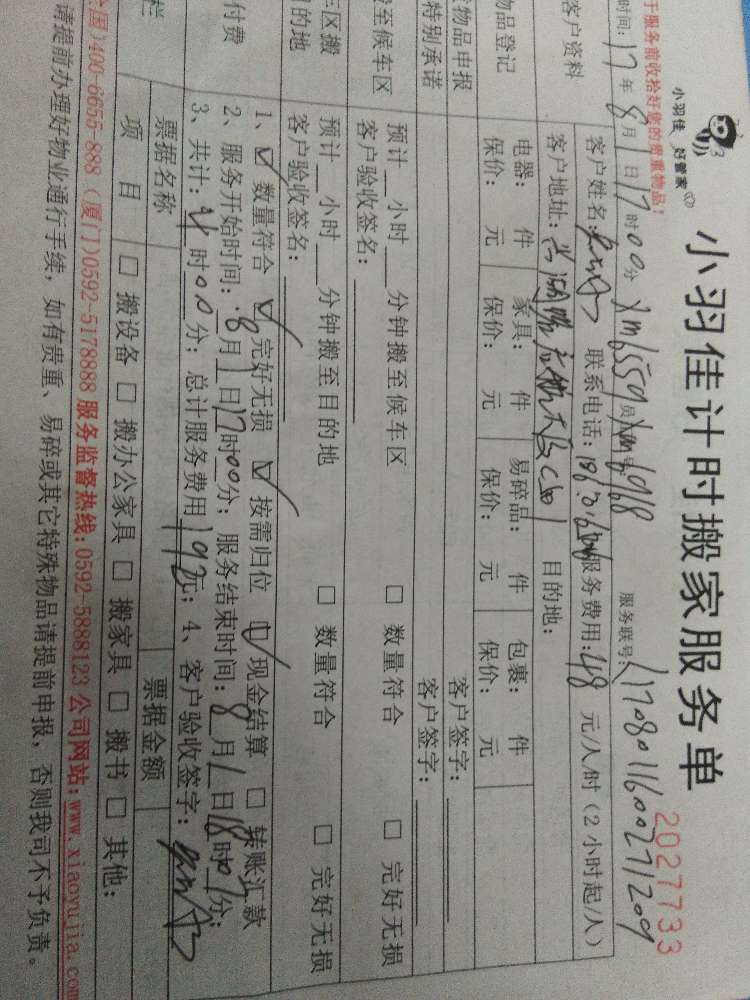 小羽佳 好管家
小羽佳计时搬家服务单
2027733
于服务前收拾好您的贵重物品!
时间: 17 年 8 月 1 日 17 时 00 分 xm6559 员 号: xm6968 服务联号:
客户资料
客户姓名: 联系电话: 服务费用: 48 元/人/时 (2小时起/人)
客户地址: 目的地:
物品登记
电器: 件 家具: 件 易碎品: 件 包裹: 件
保价: 元 保价: 元 保价: 元 保价: 元
物品申报 客户签字:
特别承诺 客户签字:
至候车区
预计 小时 分钟搬至候车区 □ 数量符合 □ 完好无损
客户验收签名:
车区搬
目的地
预计 小时 分钟搬至目的地 □ 数量符合 □ 完好无损
客户验收签名:
付费
1、☑ 数量符合 ☑ 完好无损 ☑ 按需归位 ☑ 现金结算 □ 转账汇款
2、服务开始时间: 8 月 1 日 17 时 00 分; 服务结束时间: 8 月 1 日 18 时 分;
3、共计: 时 00 分; 总计服务费用 192 元; 4、客户验收签字:
栏
票据名称 票据金额
项 目 □ 搬设备 □ 搬办公家具 □ 搬家具 □ 搬书 □ 其他:
全国)400-6655-888 (厦门)0592-5178888 服务监督热线:0592-5888123 公司网站:www.xiaoyujia.com
请提前办理好物业通行手续,如有贵重、易碎或其它特殊物品请提前申报,否则我司不予负责。